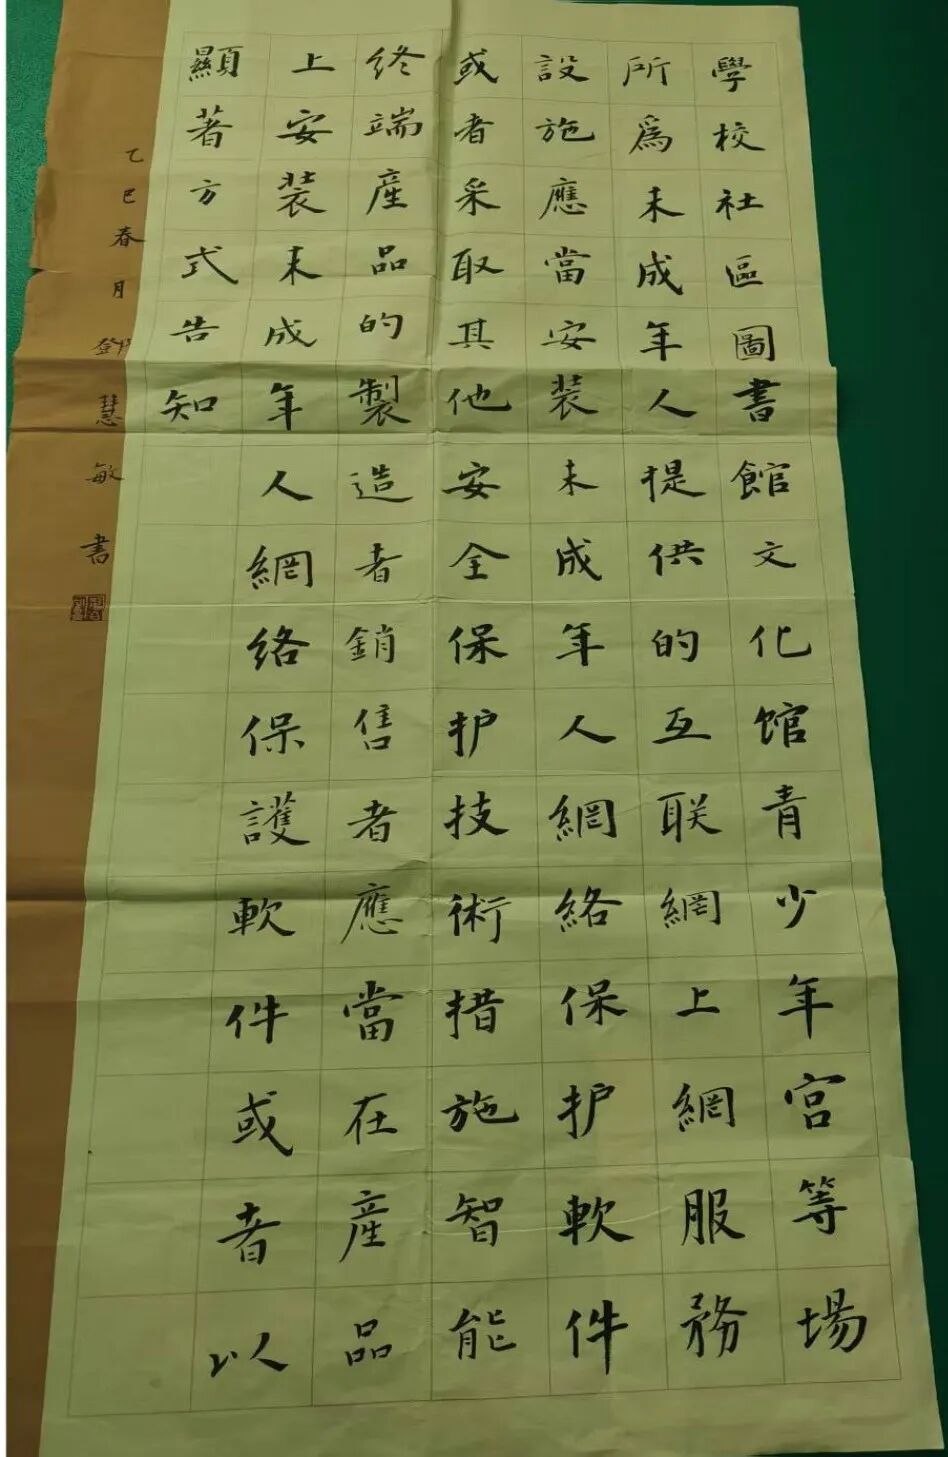 學校社區圖書館文化館青少年宮等場
所爲未成年人提供的互联網上網服務
設施應當安装未成年人網絡保护軟件
或者采取其他安全保护技術措施智能
終端産品的製造者銷售者應當在産品
上安装未成年人網絡保護軟件或者以
顯著方式告知
乙巳春月鄧慧敏書